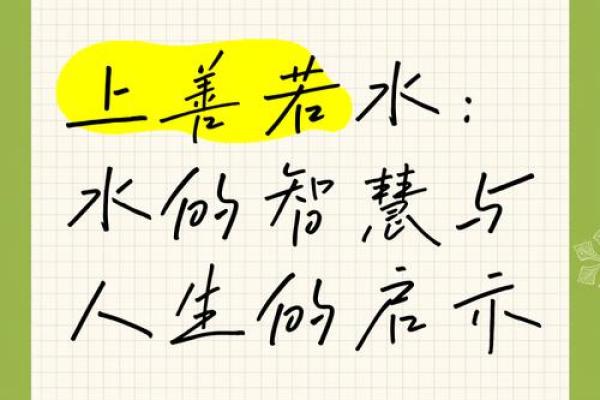 上善若水：
水的智慧与
人生的启示